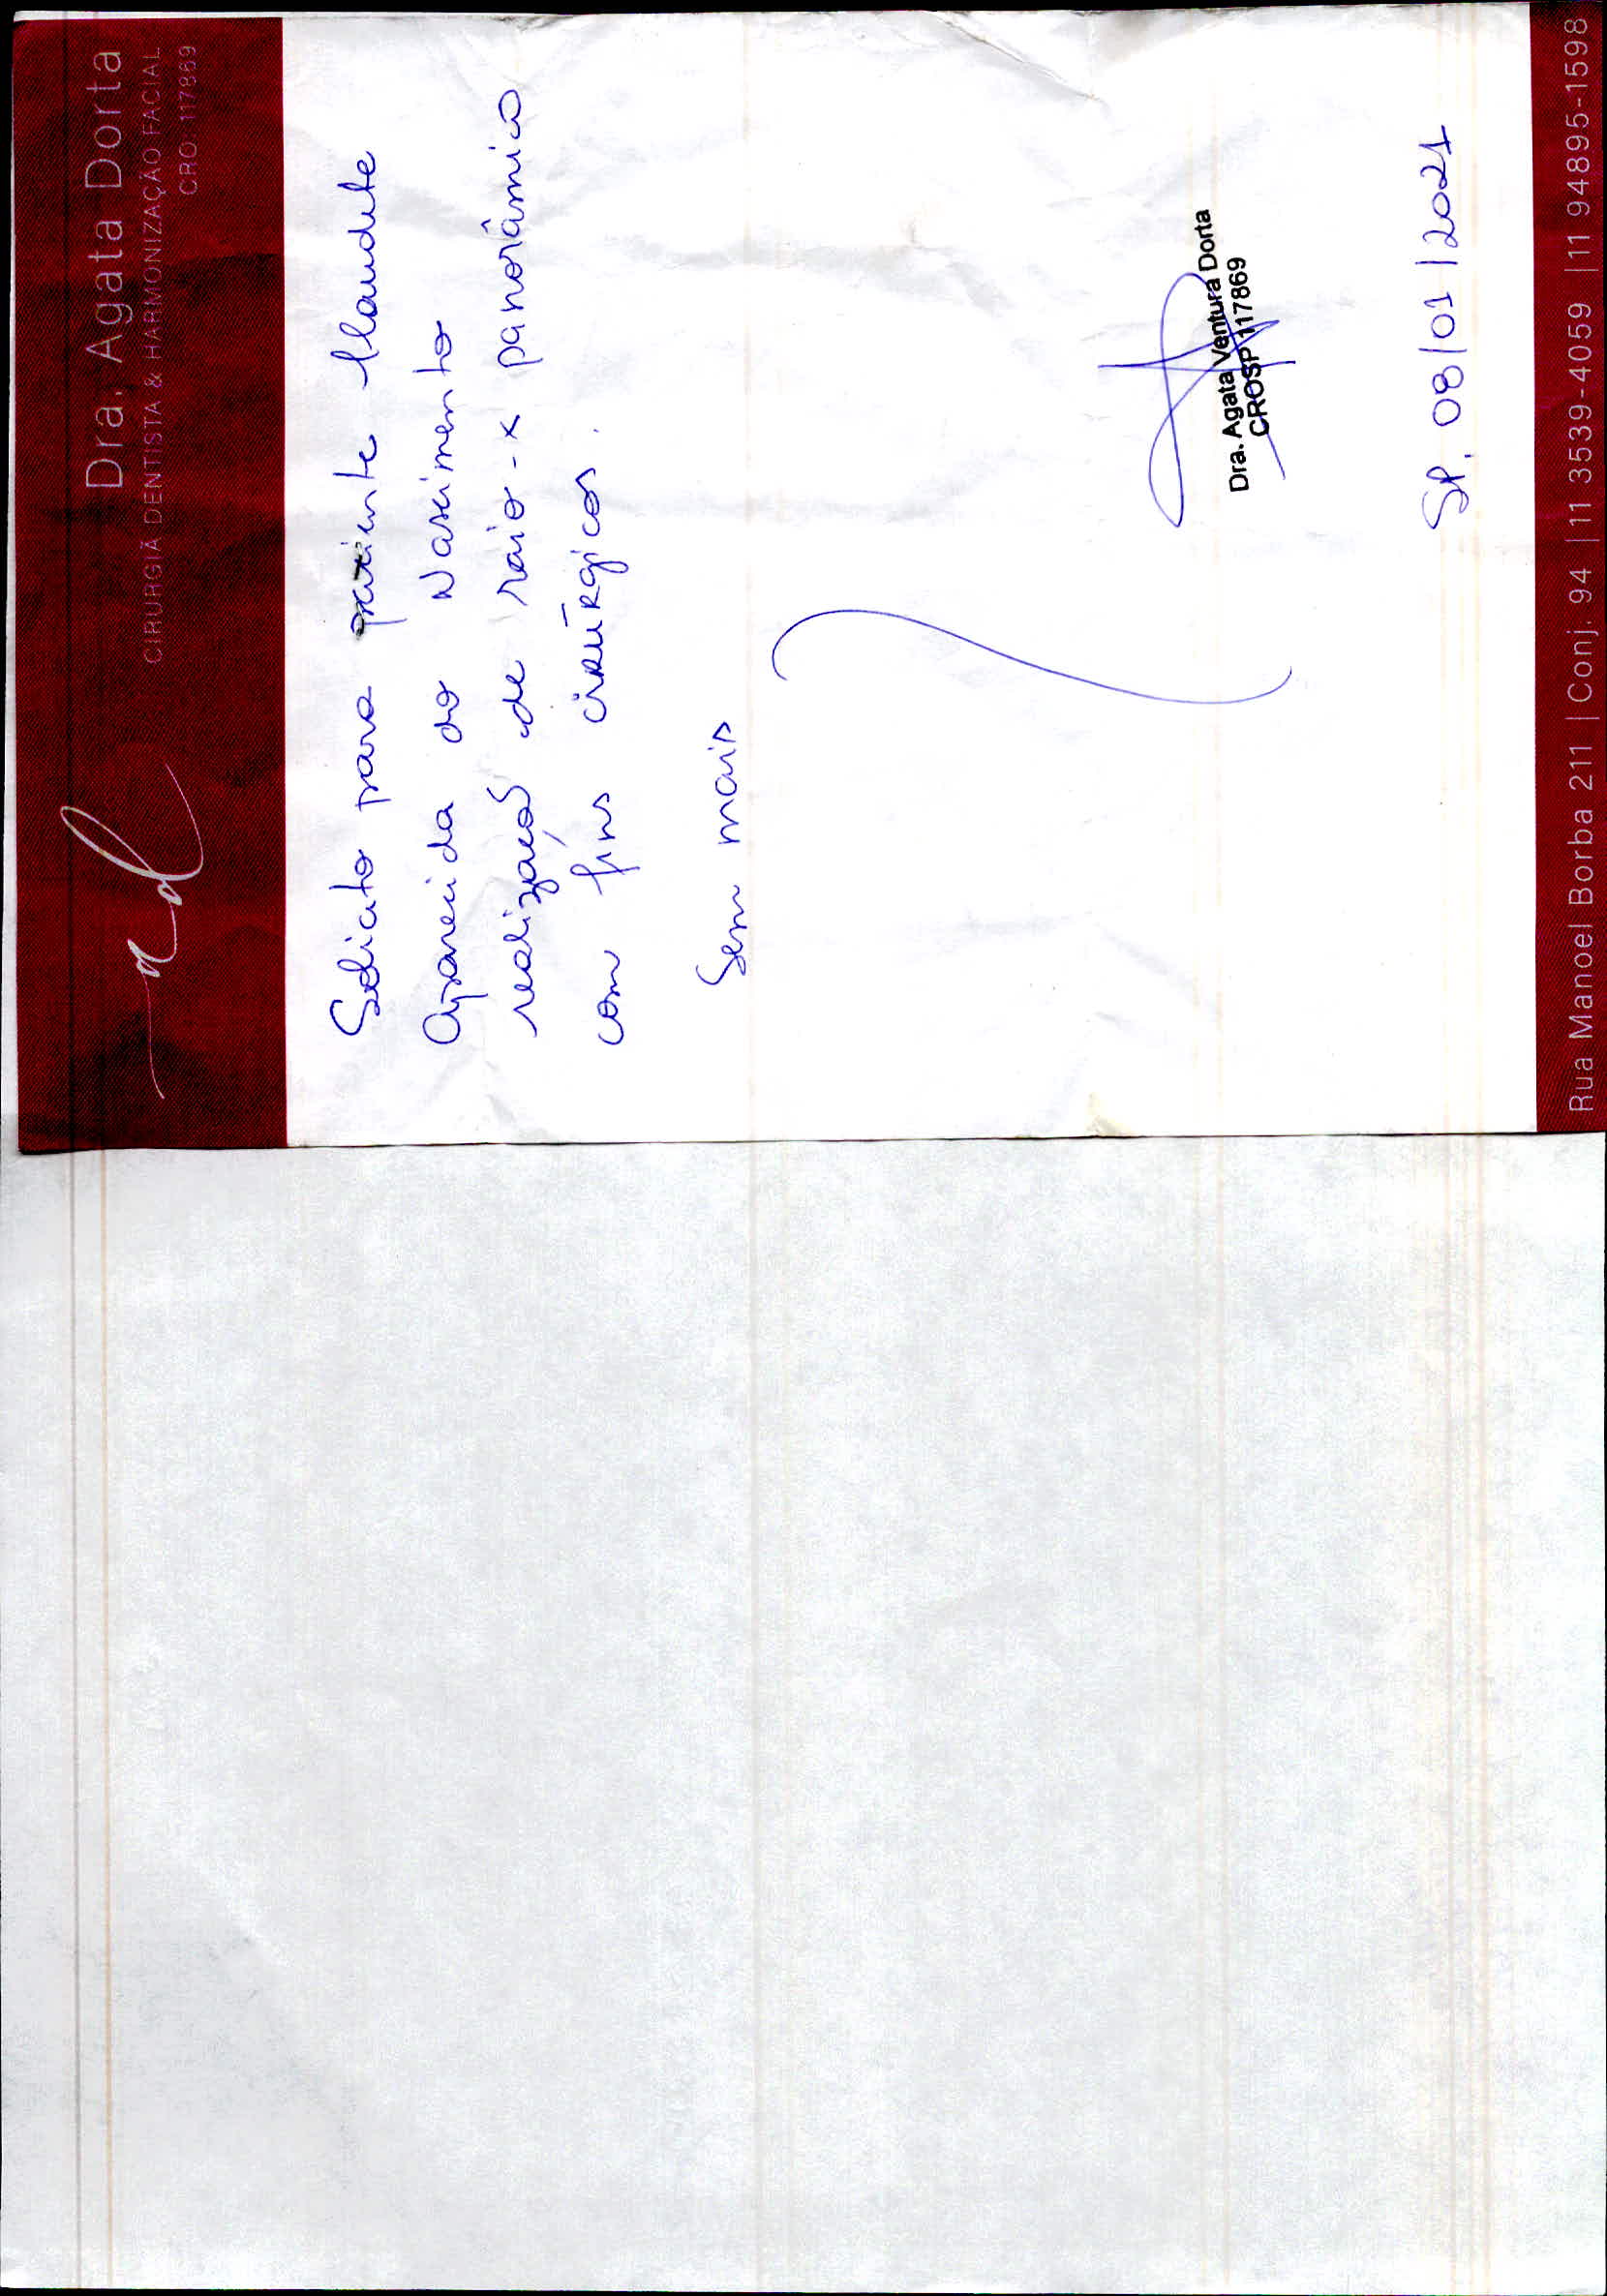 ad
Dra. Agata Dorta
CIRURGIÃ DENTISTA & HARMONIZAÇÃO FACIAL
CRO: 117869
Solicito para paciente Claudete
Aparecida do Nascimento
realização de raio-x panorâmico
com fins cirúrgicos.
Sem mais
Dra. Agata Ventura Dorta
CROSP 117869
SP, 08/01/2021
Rua Manoel Borba 211 | Conj. 94 | 11 3539-4059 | 11 94895-1598